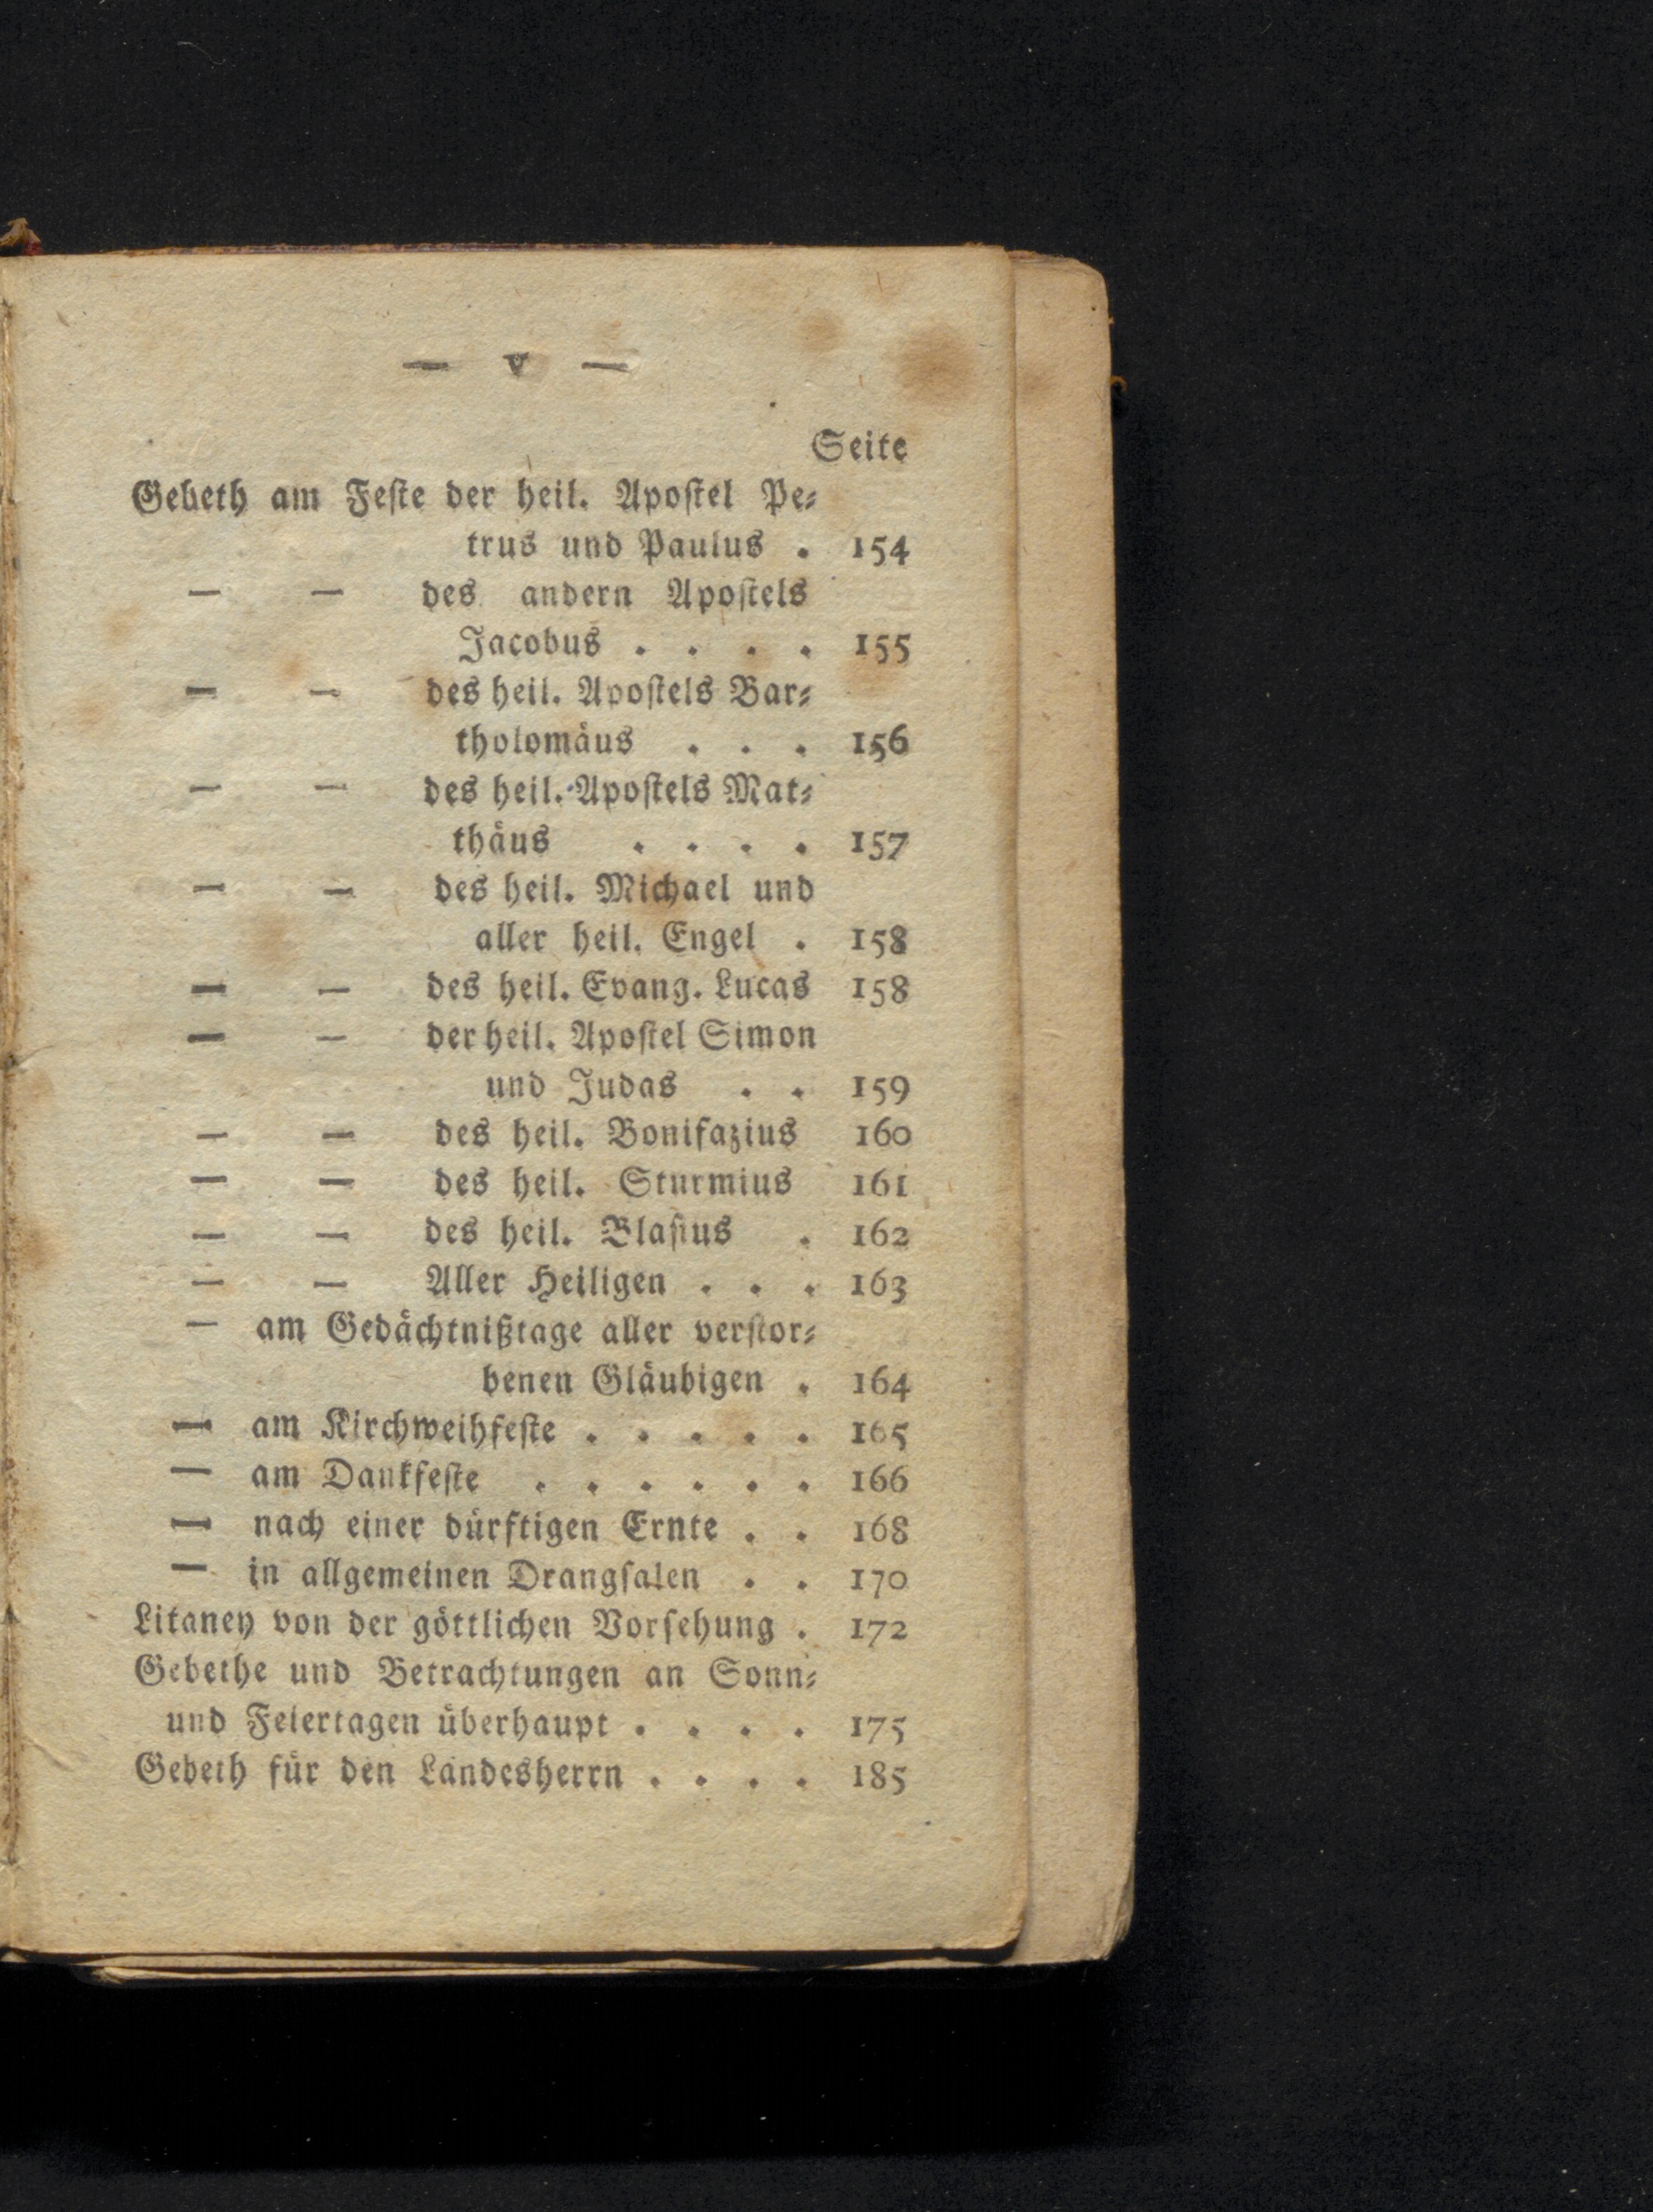 — v —
Seite
Gebeth am Feſte der heil. Apoſtel Pe⸗
trus und Paulus . 154
— — des andern Apoſtels
Jacobus . . . . 155
— — des heil. Apoſtels Bar⸗
tholomäus . . . 156
— — des heil. Apoſtels Mat⸗
thäus . . . . 157
— — des heil. Michael und
aller heil. Engel . 158
— — des heil. Evang. Lucas 158
— — der heil. Apoſtel Simon
und Judas . . 159
— — des heil. Bonifazius 160
— — des heil. Sturmius 161
— — des heil. Blaſius . 162
— — Aller Heiligen . . . 163
— am Gedächtnißtage aller verſtor⸗
benen Gläubigen . 164
— am Kirchweihfeſte . . . . . 165
— am Dankfeſte . . . . . . 166
— nach einer dürftigen Ernte . . 168
— in allgemeinen Drangſalen . . 170
Litaney von der göttlichen Vorſehung . 172
Gebethe und Betrachtungen an Sonn⸗
und Feiertagen überhaupt . . . . 175
Gebeth für den Landesherrn . . . . 185